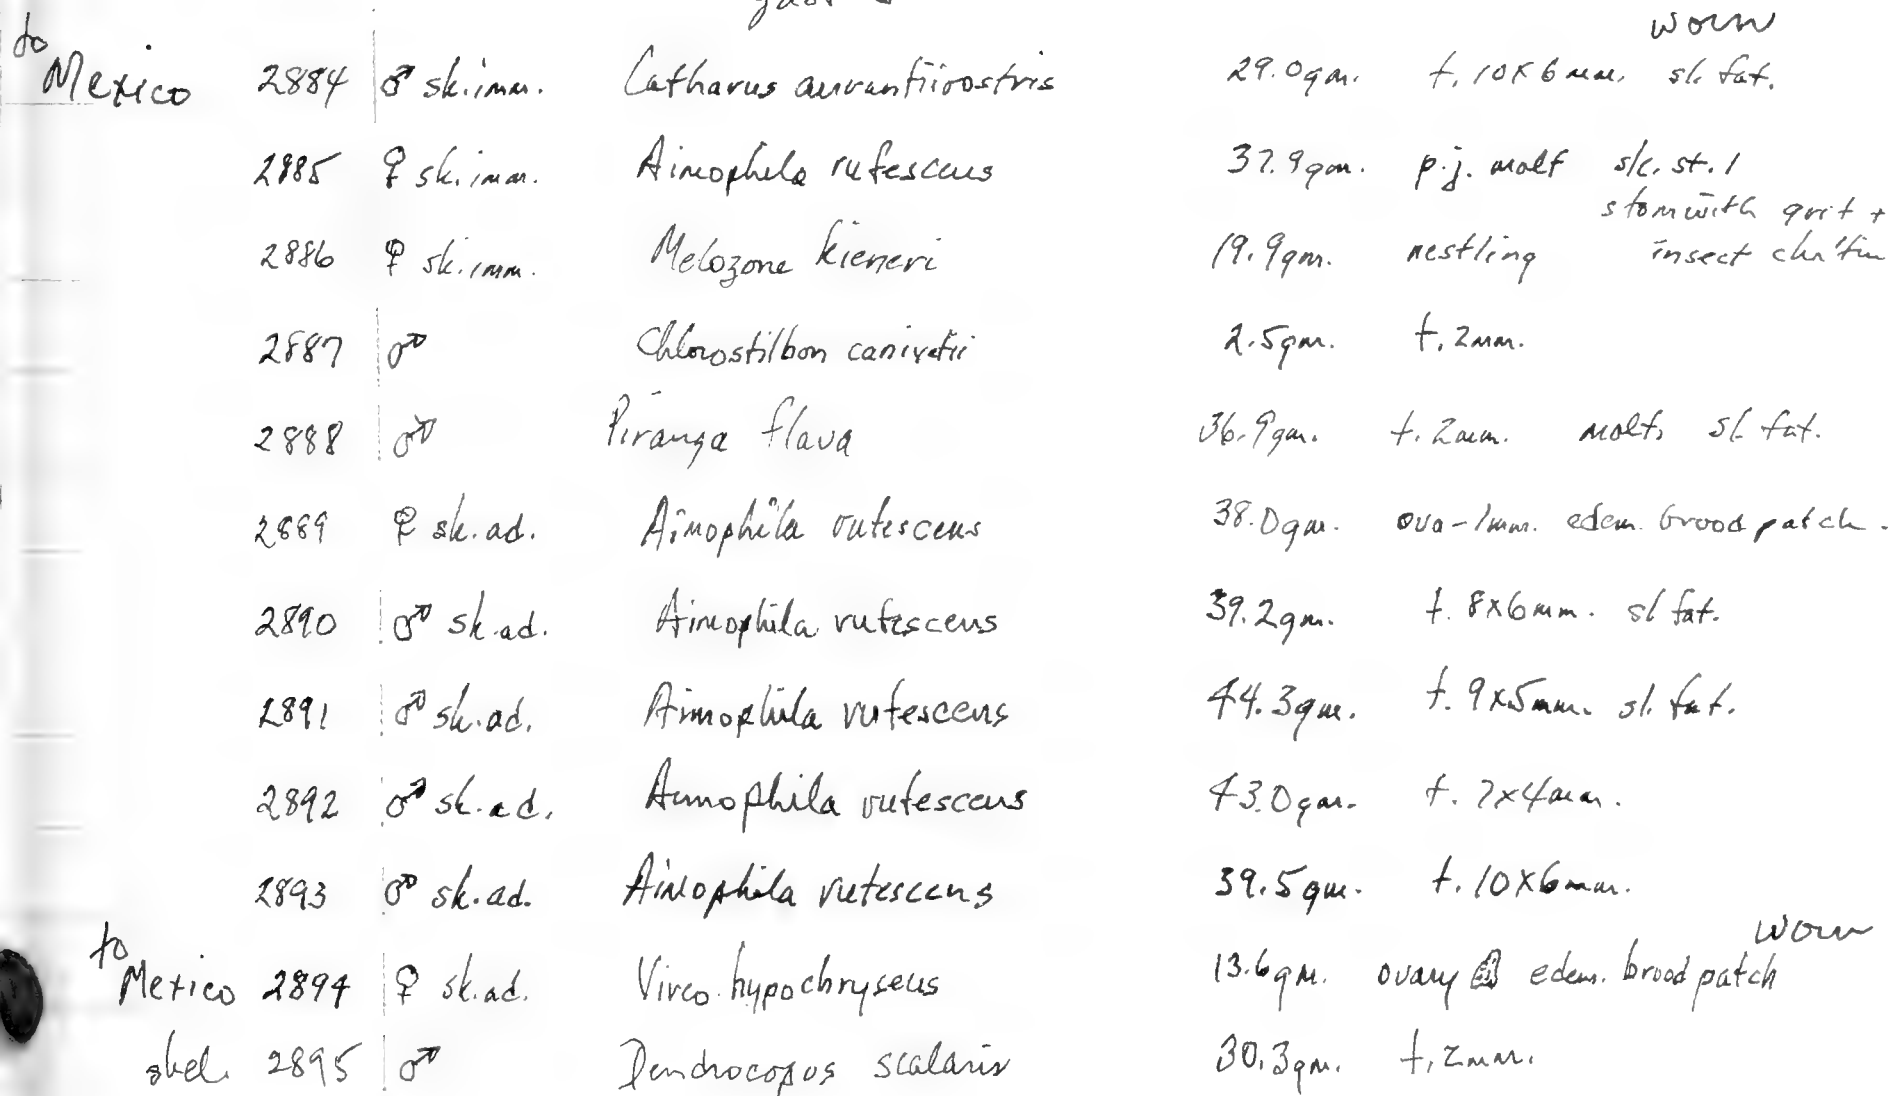 worn
to
Mexico 2884 ♂ sk.imm. Catharus aurantiirostris 29.0gm. t. 10x6mm. sl. fat.
2885 ♀ sk.imm. Aimophila rufescens 37.9gm. p.j. molt sk. st. 1
stom with grit +
2886 ♀ sk.imm. Melozone kieneri 19.9gm. nestling insect chitin
2887 ♂ Chlorostilbon canivetii 2.5gm. t. 2mm.
2888 ♂ Piranga flava 36.9gm. t. 2mm. molt, sl. fat.
2889 ♀ sk.ad. Aimophila rufescens 38.0gm. ova-1mm. edem. brood patch.
2890 ♂ sk.ad. Aimophila rufescens 39.2gm. t. 8x6mm. sl fat.
2891 ♂ sk.ad. Aimophila rufescens 44.3gm. t. 9x5mm. sl. fat.
2892 ♂ sk.ad. Aimophila rufescens 43.0gm. t. 7x4mm.
2893 ♂ sk.ad. Aimophila rufescens 39.5gm. t. 10x6mm.
to worn
Mexico 2894 ♀ sk.ad. Vireo hypochryseus 13.6gm. ovary edem. brood patch
skel. 2895 ♂ Dendrocopus scalaris 30.3gm. t. 2mm.